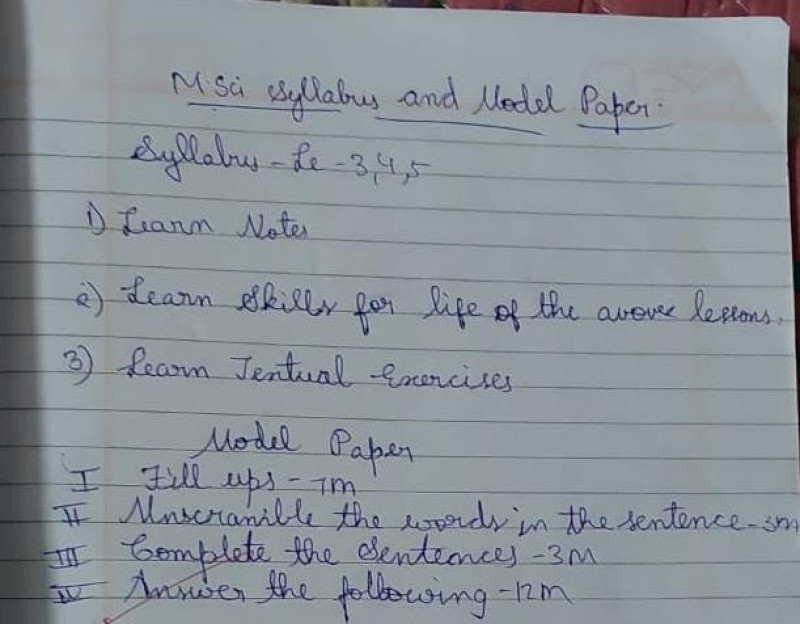 M.Sci Syllabus and Model Paper.
Syllabus - Le - 3,4,5
1) Learn Notes
2) Learn Skills for life of the avove lessons.
3) Learn Textual Exercises
Model Paper
I Fill ups - 7m
II Unscramble the words in the sentence - 3m
III Complete the Sentences - 3M
IV Answer the following - 12m